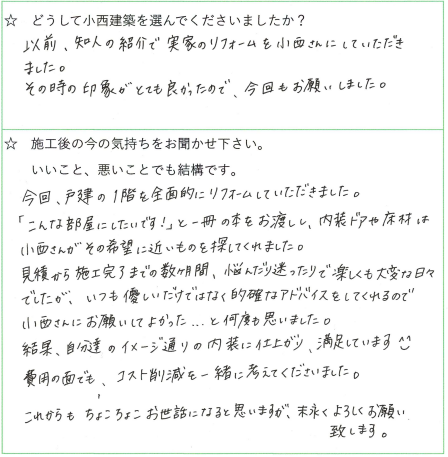 ☆ どうして小西建築を選んでくださいましたか？
以前、知人の紹介で実家のリフォームを小西さんにしていただき
ました。
その時の印象がとても良かったので、今回もお願いしました。
☆ 施工後の今の気持ちをお聞かせ下さい。
いいこと、悪いことでも結構です。
今回、戸建の1階を全面的にリフォームしていただきました。
「こんな部屋にしたいです！」と一冊の本をお渡しし、内装ドアや床材は
小西さんがその希望に近いものを探してくれました。
見積から施工完了までの数ヶ月間、悩んだり迷ったりで楽しくも大変な日々
でしたが、いつも優しいだけではなく的確なアドバイスをしてくれるので
小西さんにお願いしてよかった…と何度も思いました。
結果、自分達のイメージ通りの内装に仕上がり、満足しています
費用の面でも、コスト削減を一緒に考えてくださいました。
これからもちょこちょこお世話になると思いますが、末永くよろしくお願い
致します。